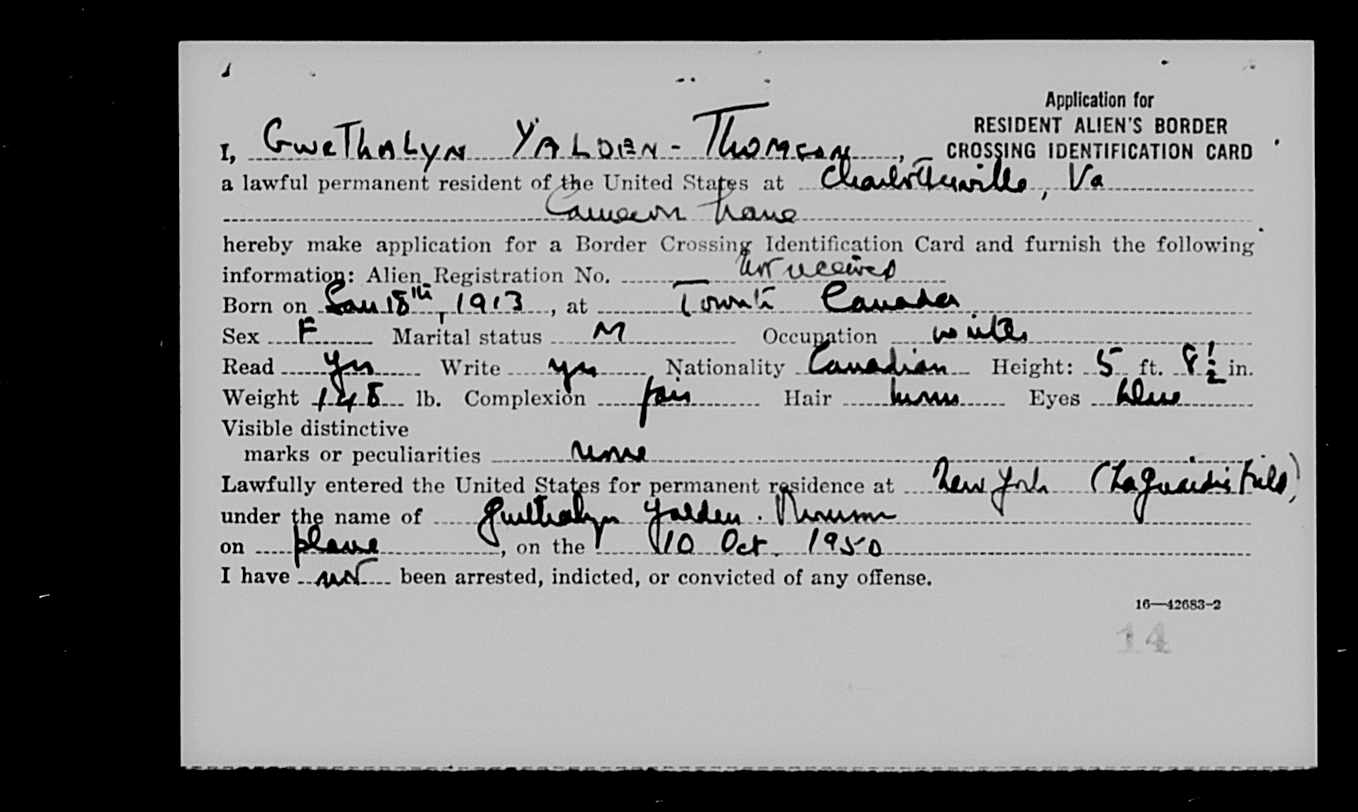 Application for
RESIDENT ALIEN'S BORDER
CROSSING IDENTIFICATION CARD
I, GWETHALYN YALDEN-THOMSON,
a lawful permanent resident of the United States at Charlottesville, Va
Cameron Lane
hereby make application for a Border Crossing Identification Card and furnish the following
information: Alien Registration No. not received
Born on Jan 18th, 1913, at Toronto Canada
Sex F Marital status M Occupation writer
Read yes Write yes Nationality Canadian Height: 5 ft. 8 1/2 in.
Weight 148 lb. Complexion fair Hair brown Eyes blue
Visible distinctive
marks or peculiarities none
Lawfully entered the United States for permanent residence at New York (LaGuardia Field)
under the name of Gwethalyn Yalden-Thomson
on plane, on the 10 Oct. 1950
I have not been arrested, indicted, or convicted of any offense.
16—42683-2
14